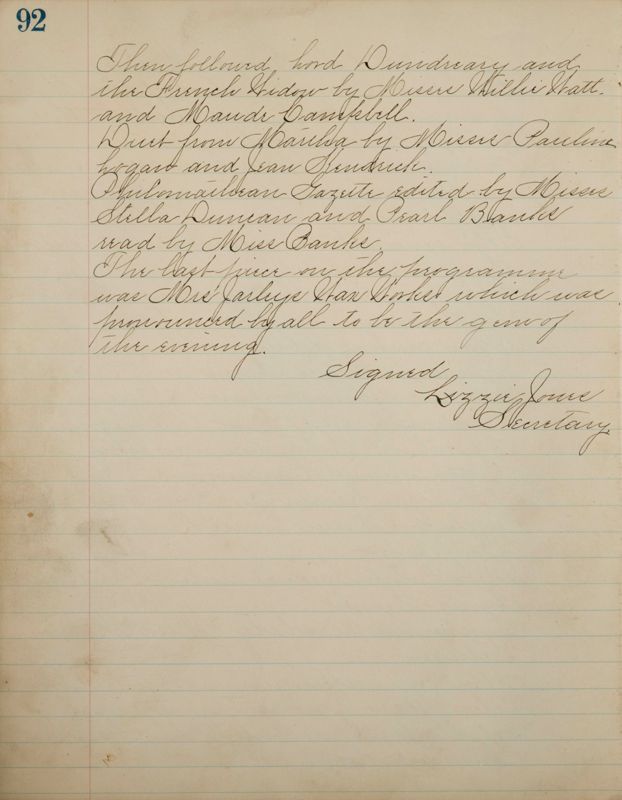 92
Then followed Lord Dundreary and
the French Widow by Misses Willie Watt.
and Maude Campbell.
Duet from Martha by Misses Pauline
Logan and Jean Kendrick.
Philomathean Gazette edited by Misses
Stella Duncan and Pearl Banks
read by Miss Banks.
The last piece on the programme
was Mrs Jarleys Wax Works which was
pronounced by all to be the gem of
the evening.
Signed
Lizzie Jones
Secretary.